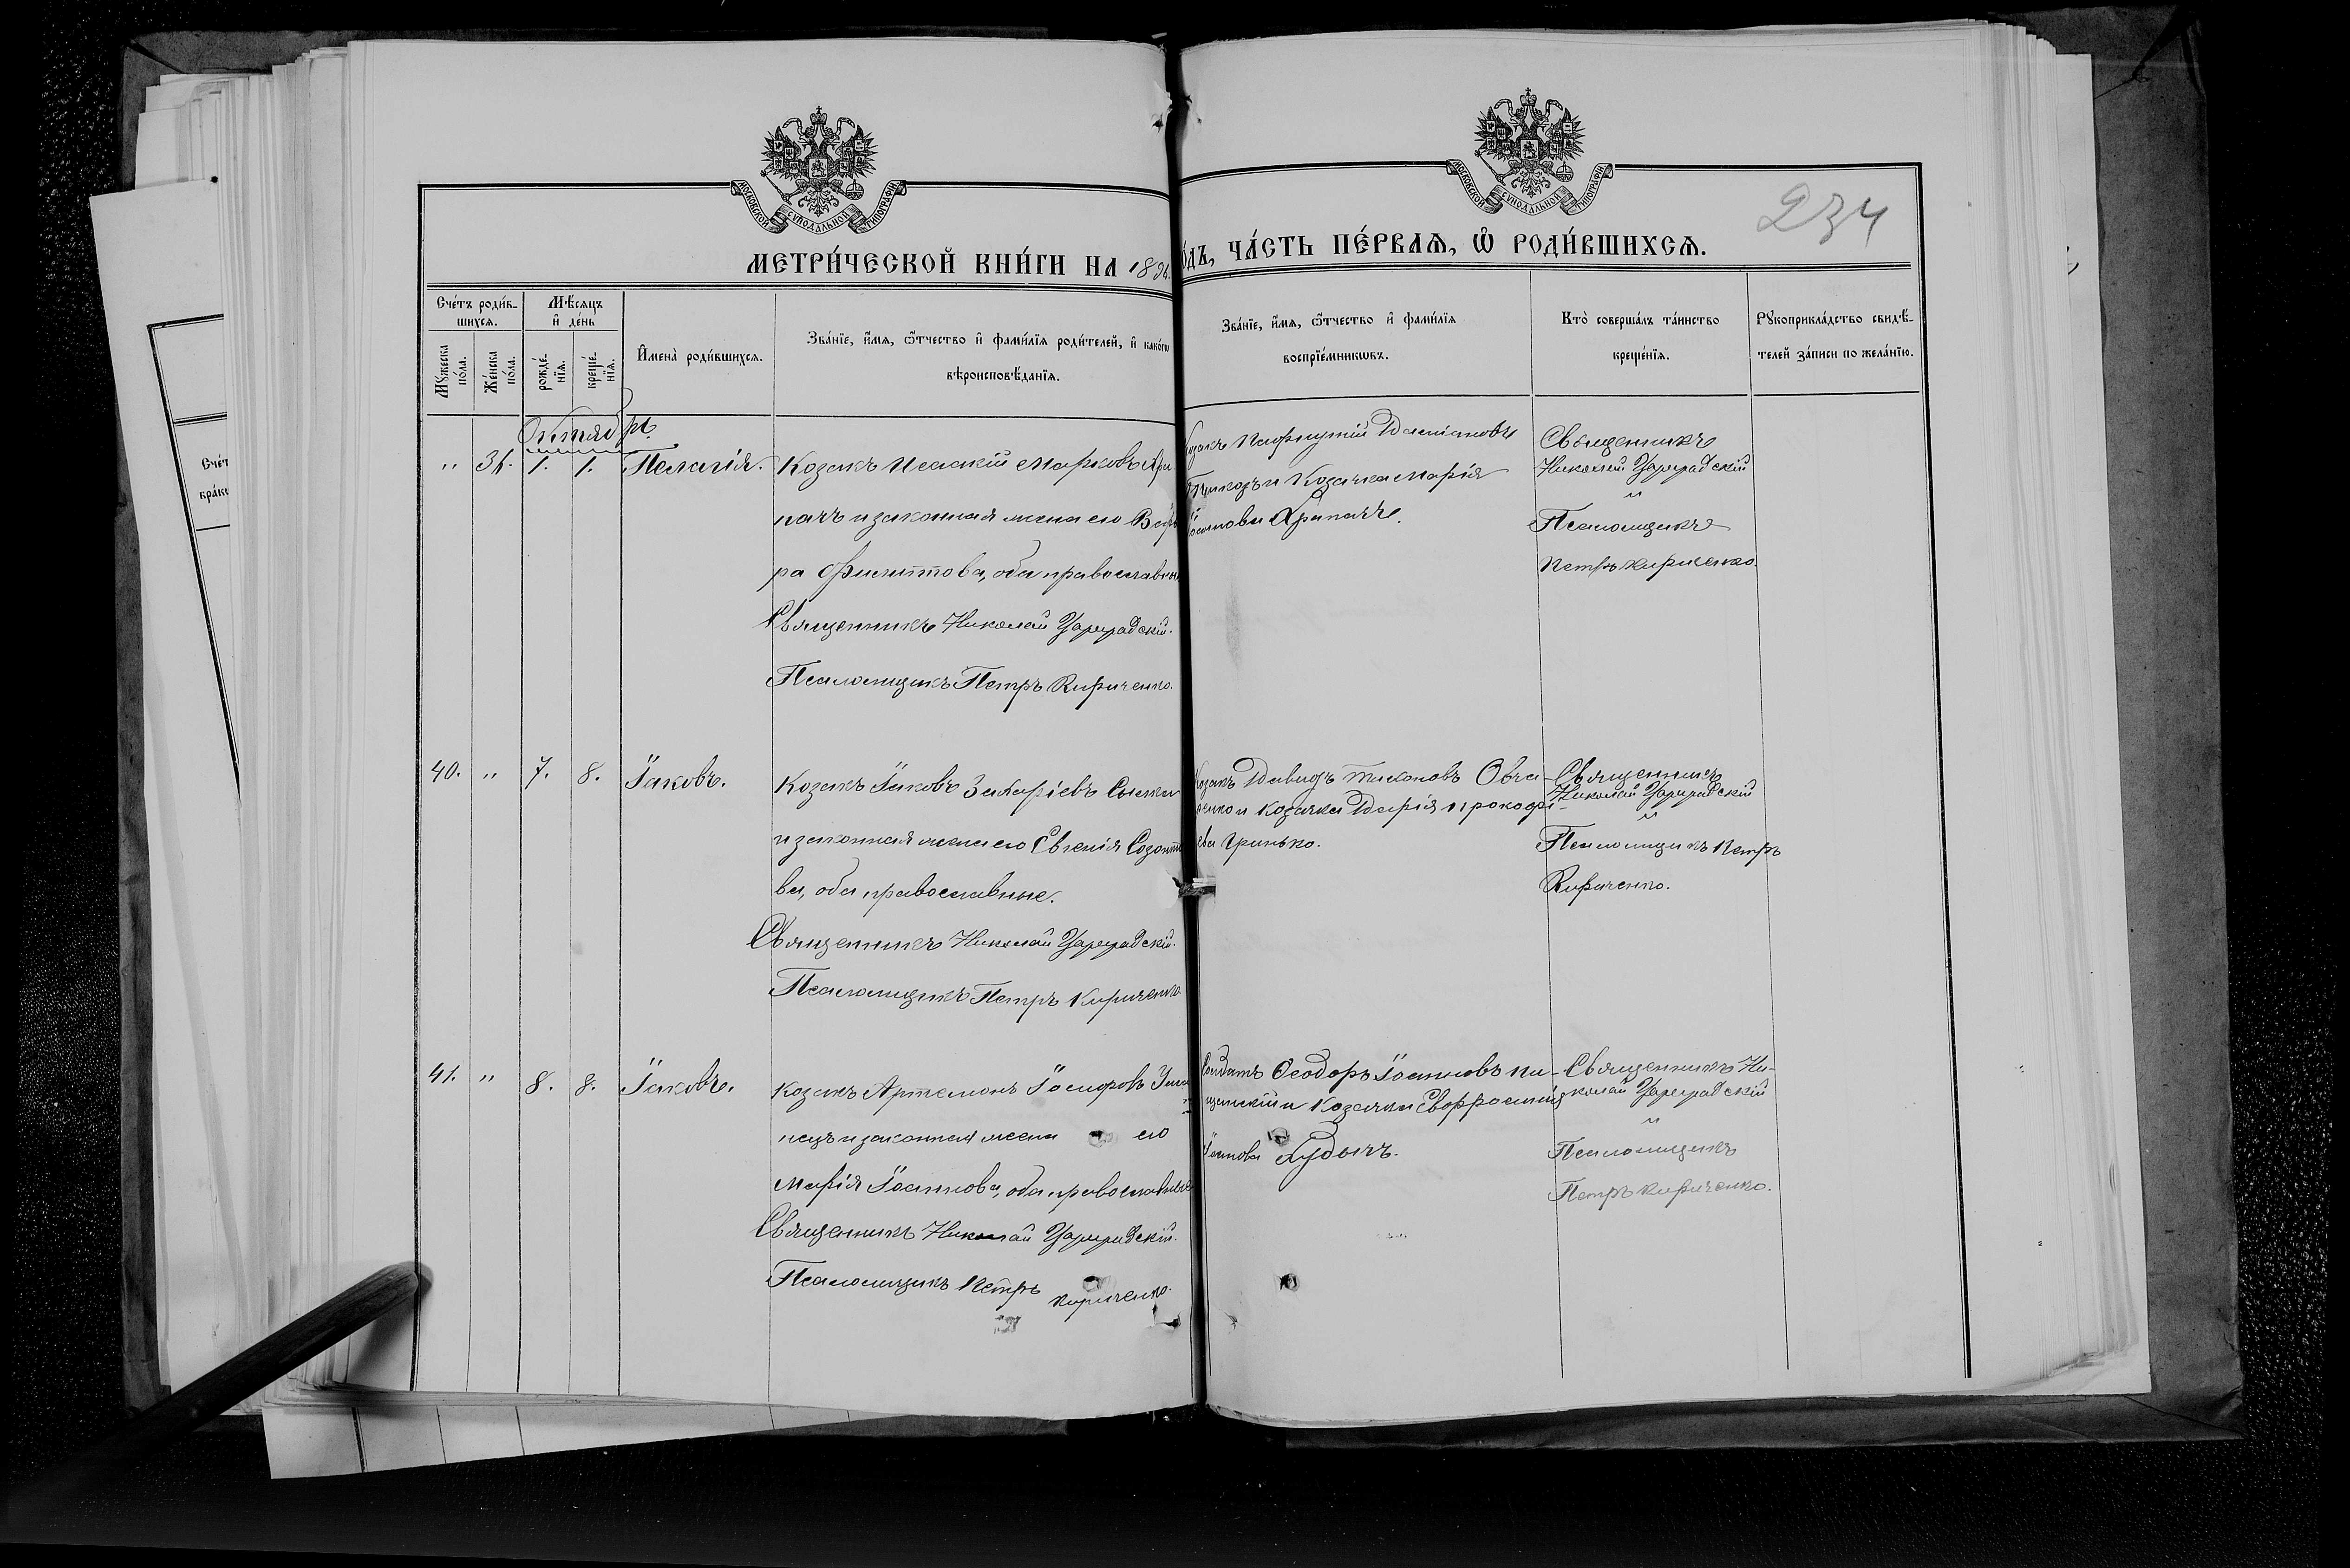 МОСКОВСКОЙ СѴНОДАЛЬНОЙ ТИПОГРАФІИ
МОСКОВСКОЙ СѴНОДАЛЬНОЙ ТИПОГРАФІИ
234
МЕТРИ́ЧЕСКОЙ КНИ́ГИ НА 1894
О́ДЪ, ЧА́СТЬ ПЕ́РВАѦ, Ѡ҆ РОДИ́ВШИХСѦ.
Сче́тъ роди́в-
шихсѧ.
Мꙋ́жеска по́ла.
Же́нска по́ла.
Мѣ́сѧцъ
и҆ де́нь
рожде́-
нїѧ.
креще́-
нїѧ.
И҆мена̀ роди́вшихсѧ.
Зва́нїе, и҆́мѧ, ѻ҆́тчество и҆ фами́лїѧ роди́телей, и҆ како́гѡ
вѣроисповѣ́данїѧ.
Зва́нїе, и҆́мѧ, ѻ҆́тчество и҆ фами́лїѧ
воспрїе́мникѡвъ.
Кто̀ соверша́лъ та́инство
креще́нїѧ.
Рꙋкоприкла́дство свидѣ́-
телей за́писи по жела́нїю.
Октябрь
" 1. 1. Пелагія.
Козакъ Исаакій Марковъ Хри
пачъ и законная жена его Вар
ра Филиппова, оба православн
Священникъ Николай Цареградскій.
Псаломщикъ Петръ Кириченко.
Козакъ Пафнутій Даміановъ
и Козачка Марія
Хрипачъ.
Священникъ
Николай Цареградскій
и
Псаломщикъ
Петръ Кириченко.
40. " 7. 8. Іаковъ.
Козакъ Іаковъ Захаріевъ
и законная жена его Евгенія Созонто
ва, оба православные.
Священникъ Николай Цареградскій.
Псаломщикъ Петръ Кириченко
Козакъ Давидъ Тихоновъ Овча
ренко и козачка Дарія Прокофі-
ева Гринько.
Священникъ
Николай Цареградскій
и
Псаломщикъ Петръ
Кириченко.
41. " 8. 8. Іаковъ.
Козакъ Артемонъ Іосифовъ
и законная жена его
Марія Іоаннова, оба православные
Священникъ Николай Цареградскій.
Псаломщикъ Петръ Кириченко.
Солдатъ Ѳеодоръ Іоанновъ
и Козачка Евфросинія
Іоаннова Худычъ.
Священникъ Ни-
колай Цареградскій
и
Псаломщикъ
Петръ Кириченко.
Сче́т
бра́ко